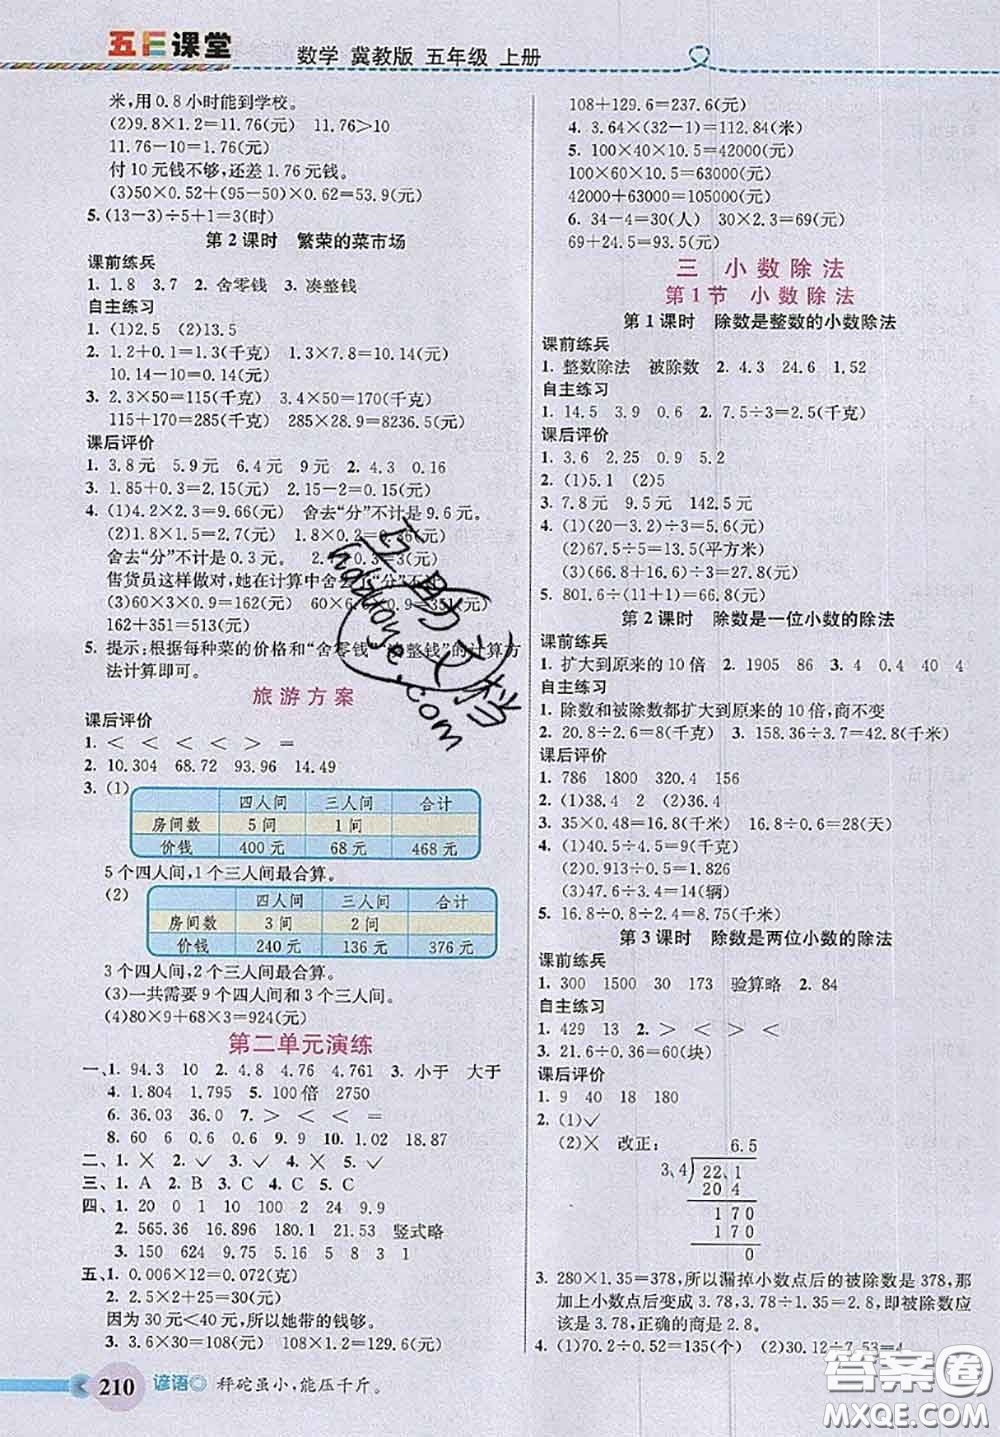 五E课堂
数学 冀教版 五年级 上册
米,用0.8小时能到学校。
(2)9.8×1.2=11.76(元) 11.76>10
11.76-10=1.76(元)
付10元钱不够,还差1.76元钱。
(3)50×0.52+(95-50)×0.62=53.9(元)
5. (13-3)÷5+1=3(时)
第2课时 繁荣的菜市场
课前练兵
1. 1.8 3.7 2. 舍零钱 3. 凑整钱
自主练习
1. (1)2.5 (2)13.5
2. 1.2+0.1=1.3(千克) 1.3×7.8=10.14(元)
10.14-10=0.14(元)
3. 2.3×50=115(千克) 3.4×50=170(千克)
115+170=285(千克) 285×28.9=8236.5(元)
课后评价
1. 3.8元 5.9元 6.4元 9元 2. 4.3 0.16
3. 1.85+0.3=2.15(元)
4. (1)4.2×2.3=9.66(元) 舍去“分”不计是9.6元。
(2)1.8×1.5=2.7(元) 1.8×0.2=0.36(元)
舍去“分”不计是0.3元。 2.7+0.3=3(元)
售货员这样做对,她在计算中舍去“分”不计。
(3)60×3×0.9=162(元) 60×6.5×0.9=351(元)
162+351=513(元)
5. 提示:根据每种菜的价格和“舍零钱”“凑整钱”的计算方
法计算即可。
旅游方案
课后评价
1. < < < < > =
2. 10.304 68.72 93.96 14.49
3. (1)
四人间 三人间 合计
房间数 5间 1间
价钱 400元 68元 468元
5个四人间,1个三人间最合算。
(2)
四人间 三人间 合计
房间数 3间 2间
价钱 240元 136元 376元
3个四人间,2个三人间最合算。
(3)一共需要9个四人间和3个三人间。
(4)80×9+68×3=924(元)
第二单元演练
一、1. 94.3 10 2. 4.8 4.76 4.761 3. 小于 大于
4. 1.804 1.795 5. 100倍 2750
6. 36.03 36.0 7. > < < =
8. 60 6 0.6 0.6 9. > 10. 1.02 18.87
二、1. ✕ 2. ✓ 3. ✓ 4. ✕ 5. ✓
三、1. A 2. B 3. C 4. C 5. C
四、1. 20 0 1 10 100 2 24 9.9
2. 565.36 16.896 180.1 21.53 竖式略
3. 150 624 9.75 5.16 5 8 3 1
五、1. 0.006×12=0.072(克)
2. 2.5×2+25=30(元)
因为30元<40元,所以她带的钱够。
3. 3.6×30=108(元) 108×1.2=129.6(元)
108+129.6=237.6(元)
4. 3.64×(32-1)=112.84(米)
5. 100×40×10.5=42000(元)
100×60×10.5=63000(元)
42000+63000=105000(元)
6. 34-4=30(人) 30×2.3=69(元)
69+24.5=93.5(元)
三 小数除法
第1节 小数除法
第1课时 除数是整数的小数除法
课前练兵
1. 整数除法 被除数 2. 4.3 24.6 1.52
自主练习
1. 14.5 3.9 0.6 2. 7.5÷3=2.5(千克)
课后评价
1. 3.6 2.25 0.9 5.2
2. (1)5.1 (2)5
3. 7.8元 9.5元 142.5元
4. (1)(20-3.2)÷3=5.6(元)
(2)67.5÷5=13.5(平方米)
(3)(66.8+16.6)÷3=27.8(元)
5. 801.6÷(11+1)=66.8(元)
第2课时 除数是一位小数的除法
课前练兵
1. 扩大到原来的10倍 2. 1905 86 3. 4 0.4 40 4
自主练习
1. 除数和被除数都扩大到原来的10倍,商不变
2. 20.8÷2.6=8(千克) 3. 158.36÷3.7=42.8(千米)
课后评价
1. 786 1800 320.4 156
2. (1)38.4 2 (2)36.4
3. 35×0.48=16.8(千米) 16.8÷0.6=28(天)
4. (1)40.5÷4.5=9(千克)
(2)0.913÷0.5=1.826
(3)47.6÷3.4=14(辆)
5. 16.8÷0.8÷2.4=8.75(千米)
第3课时 除数是两位小数的除法
课前练兵
1. 300 1500 30 173 验算略 2. 84
自主练习
1. 429 13 2. > < > <
3. 21.6÷0.36=60(块)
课后评价
1. 9 40 18 80
2. (1)✓
(2)✕ 改正:
6.5
3.4 22.1
20 4
1 7 0
1 7 0
0
3. 280×1.35=378,所以漏掉小数点后的被除数是378,那
加上小数点后变成3.78,3.78÷1.35=2.8,即被除数应
该是3.78,正确的商是2.8。
4. (1)70.2÷0.52=135(个) (2)30.12÷7.53=4
210 谚语 秤砣虽小,能压千斤。
互助文档
haduoge.com
答案圈
MXQE.COM